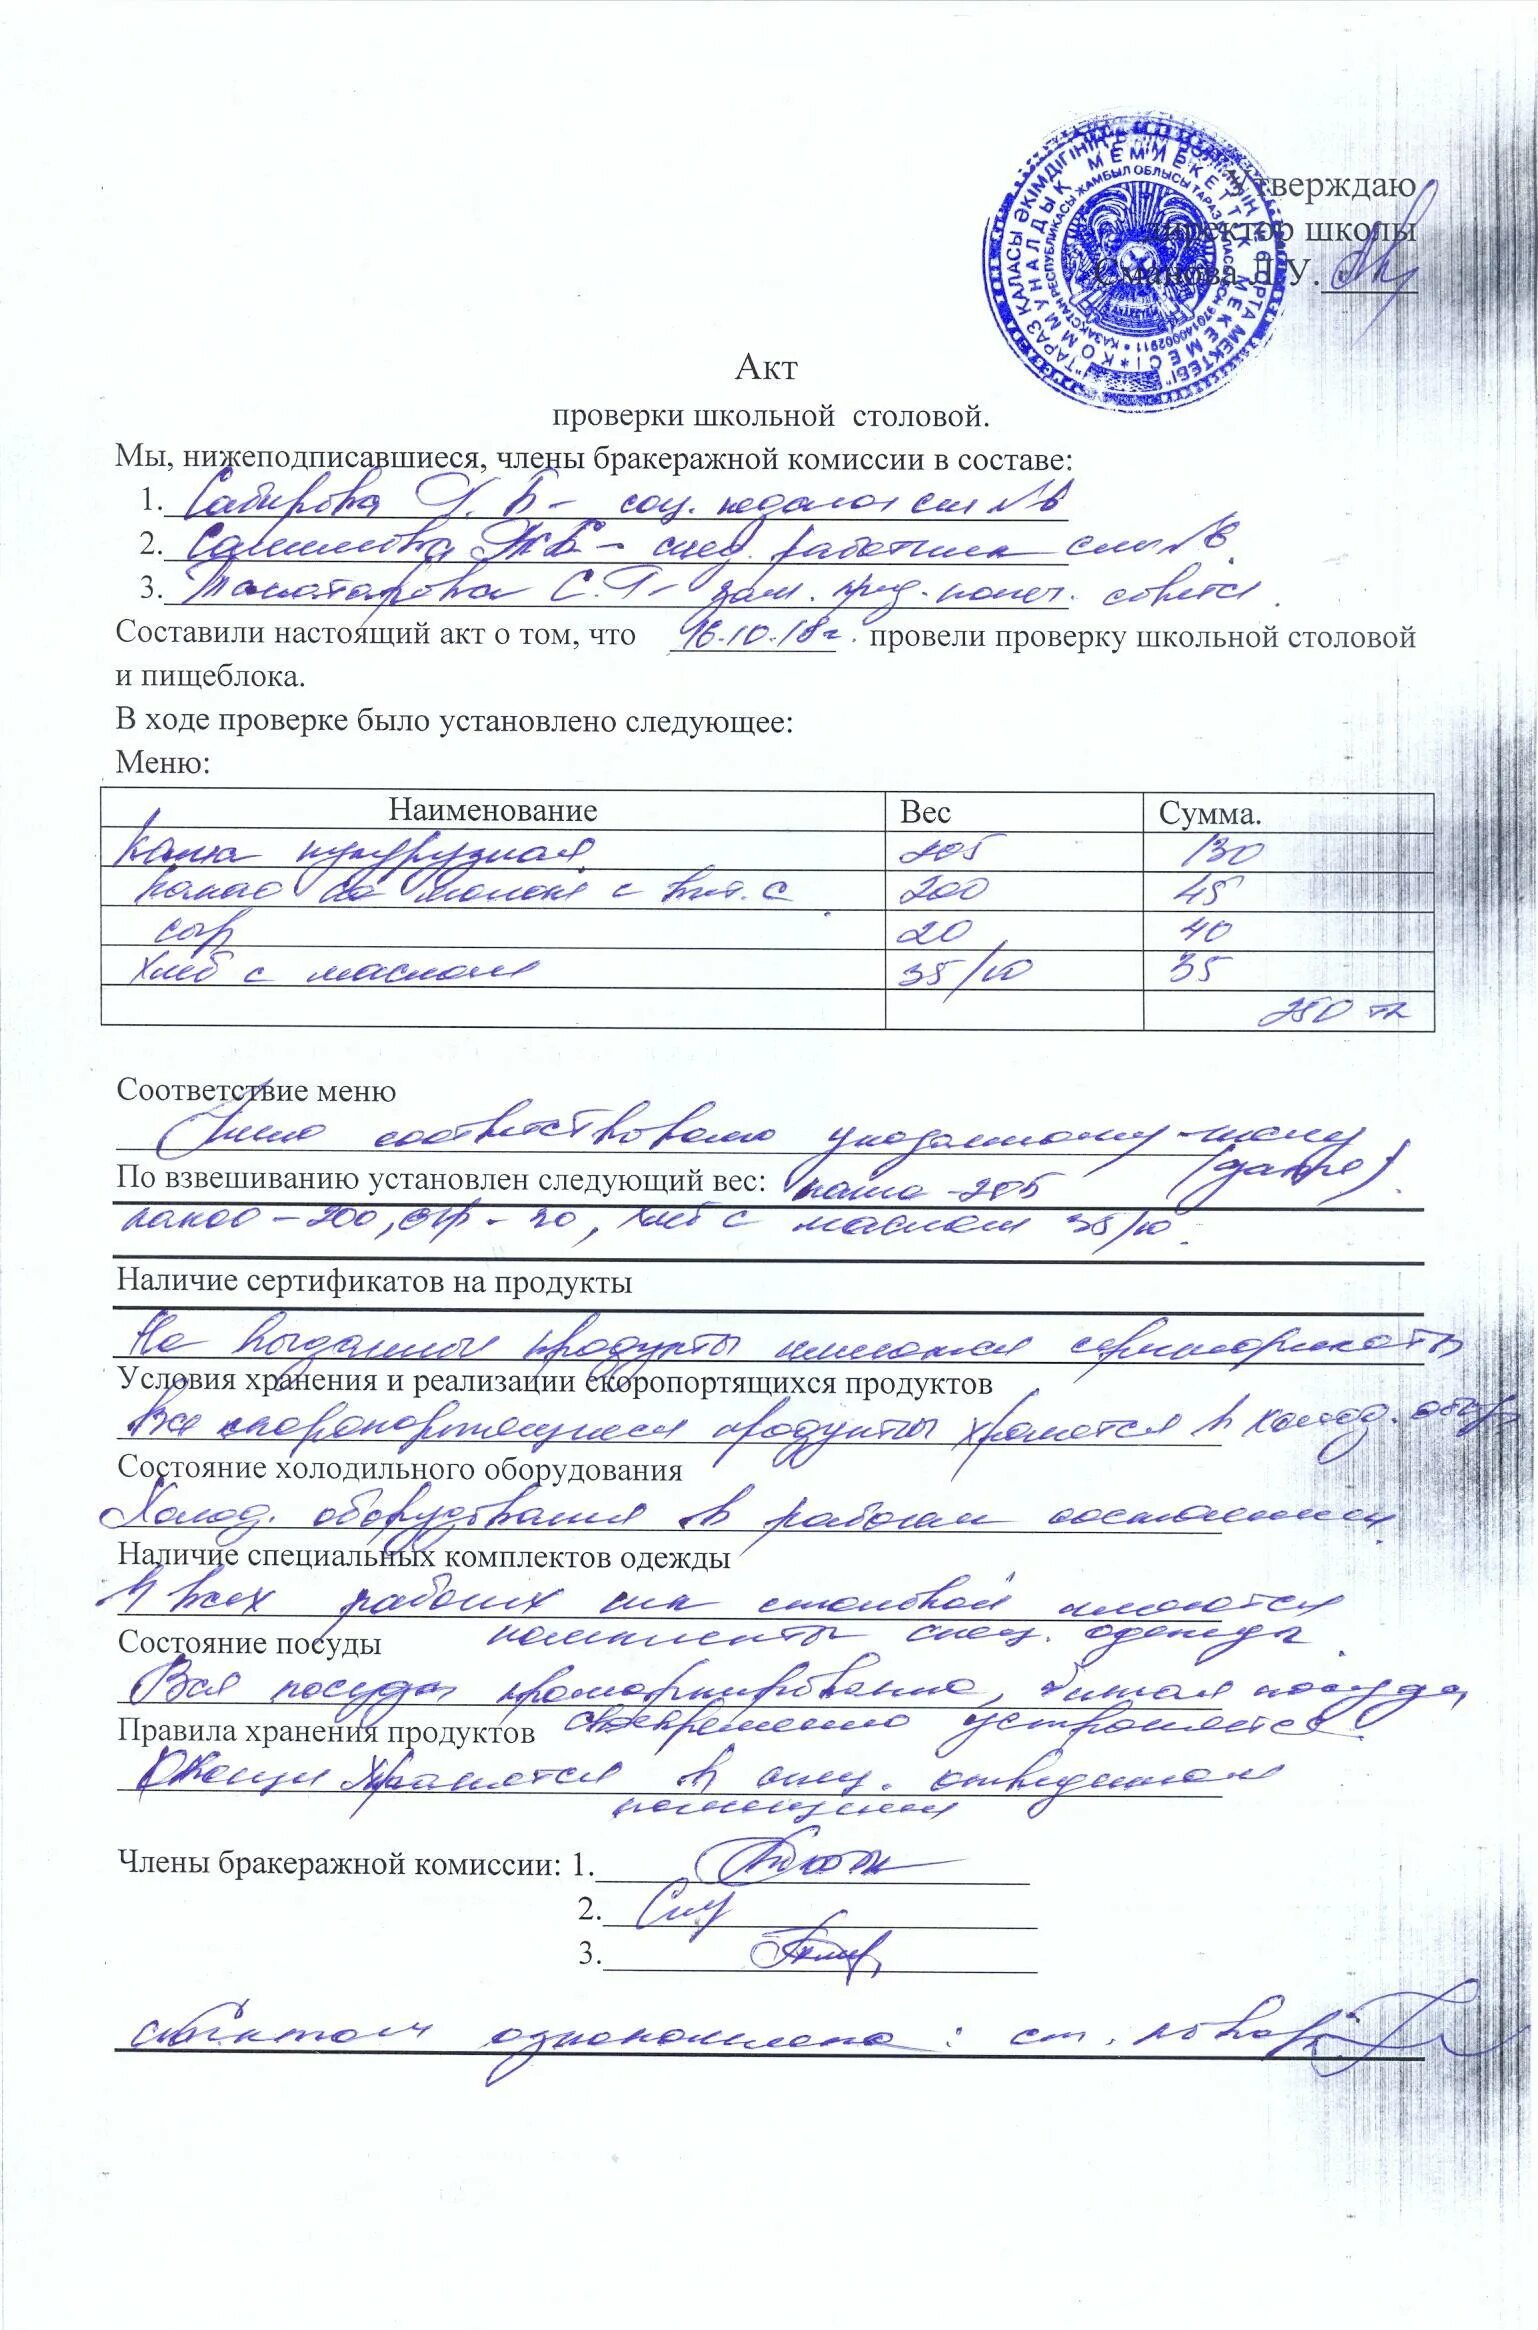 Утверждаю
директор школы
Сманова Л.У.
"ТАРАЗ ҚАЛАСЫ ӘКІМДІГІНІҢ БІЛІМ БӨЛІМІНІҢ ОРТА МЕКТЕБІ"
КОММУНАЛДЫҚ МЕМЛЕКЕТТІК МЕКЕМЕСІ
ҚАЗАҚСТАН РЕСПУБЛИКАСЫ ЖАМБЫЛ ОБЛЫСЫ ТАРАЗ ҚАЛАСЫ
Акт
проверки школьной столовой.
Мы, нижеподписавшиеся, члены бракеражной комиссии в составе:
1. Сабирова Г. Б – соц. педагог сш №6
2. Салимова Ж.Б – мед. работник сш №6.
3. С.Г – зам. пред. попеч. совета.
Составили настоящий акт о том, что 16.10.18г. провели проверку школьной столовой
и пищеблока.
В ходе проверке было установлено следующее:
Меню:
Наименование Вес Сумма.
Каша кукурузная 205 130
какао на молоке с вит. С 200 45
сыр 20 40
хлеб с маслом 35/10 35
250 тг
Соответствие меню
Меню соответствовало указанному меню
По взвешиванию установлен следующий вес: каша – 205 (дано).
какао – 200, сыр – 20, хлеб с маслом 35/10.
Наличие сертификатов на продукты
На выданные продукты имеются сертификаты
Условия хранения и реализации скоропортящихся продуктов
Все скоропортящиеся продукты хранятся в холод. обор.
Состояние холодильного оборудования
Холод. оборудования в рабочем состоянии.
Наличие специальных комплектов одежды
У всех рабочих шк столовой имеются
Состояние посуды комплекты спец. одежды.
Вся посуда промаркирована, битая посуда
Правила хранения продуктов своевременно устраняется.
Овощи хранятся в спец. отведенном
помещении
Члены бракеражной комиссии: 1.
2.
3.
с актом ознакомлена: ст. повар